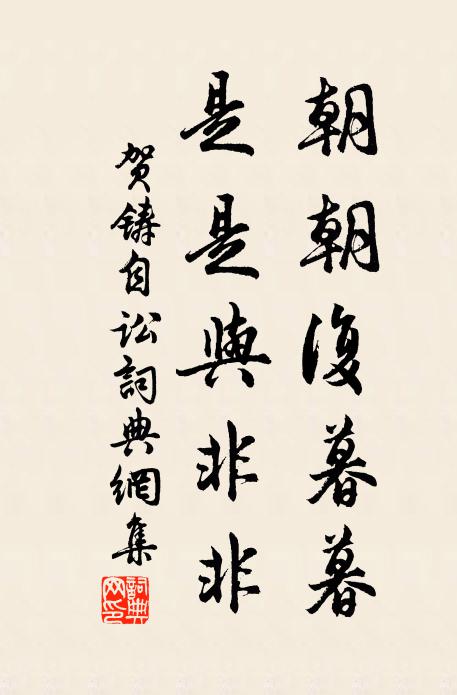 朝朝復暮暮
是是與非非
賀鑄自訟詞典網集
詞典網印